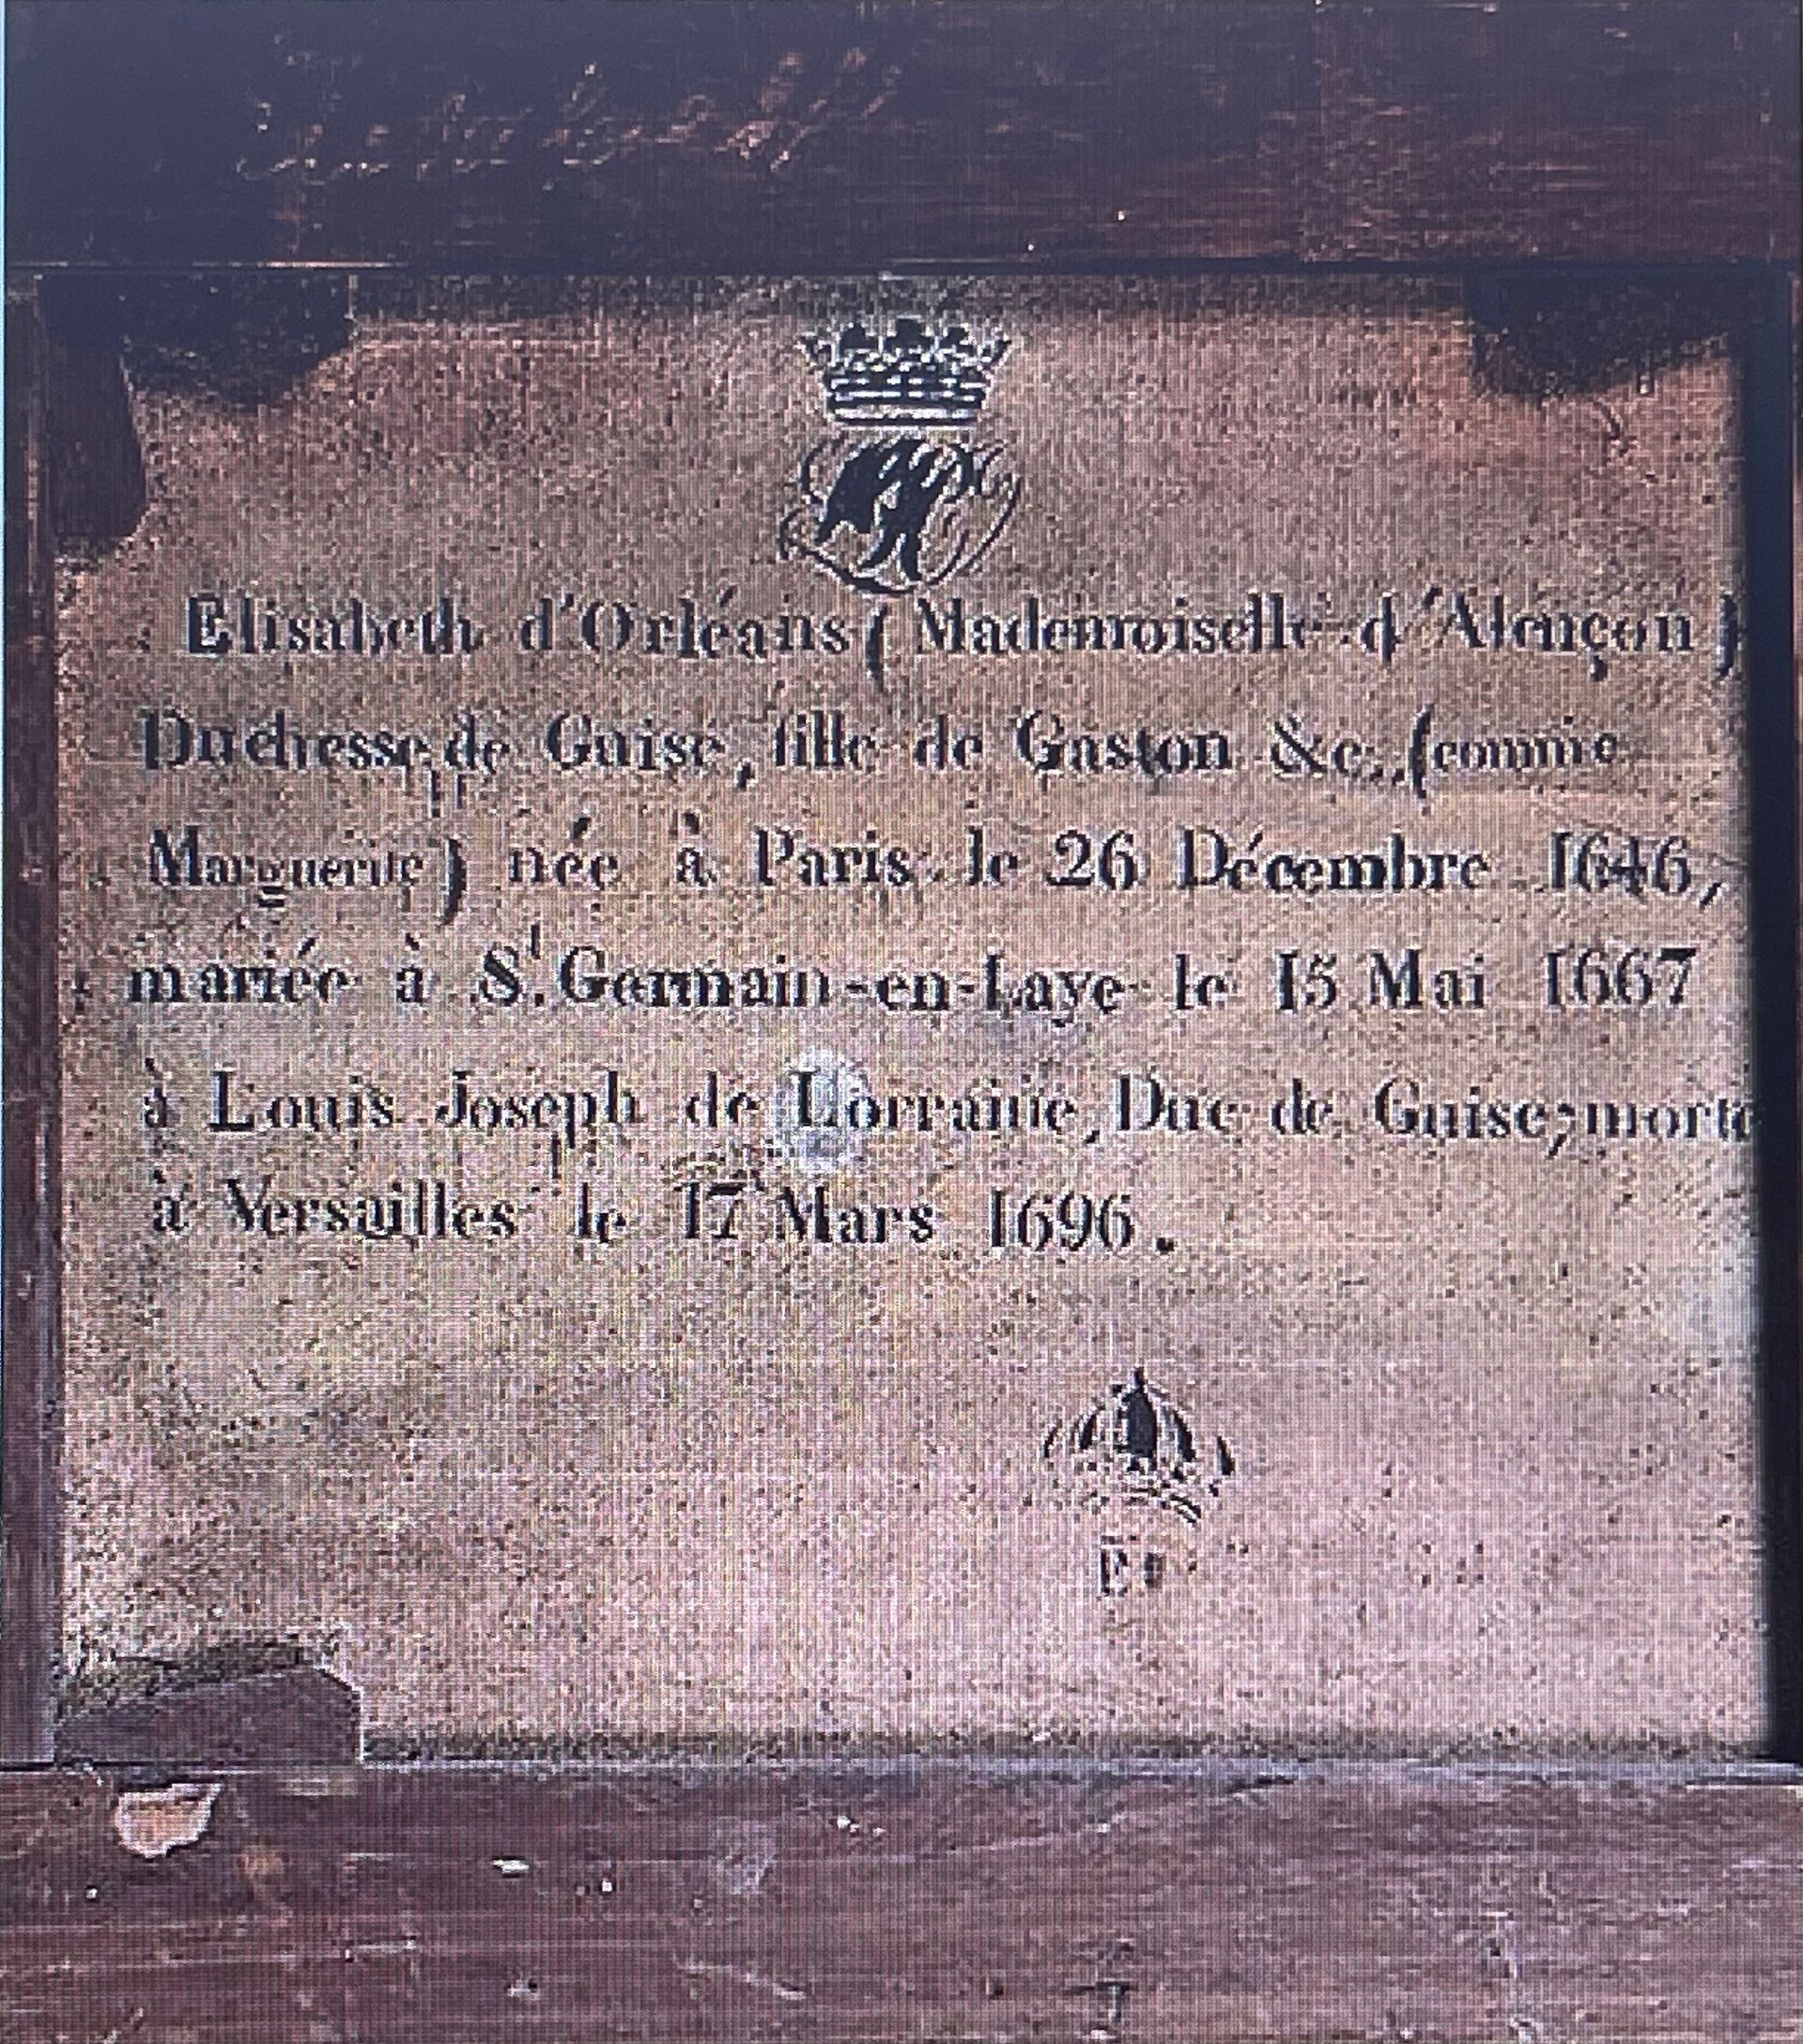 Elisabeth d'Orléans (Mademoiselle d'Alençon)
Duchesse de Guise, fille de Gaston &c. (comme
Marguerite) née à Paris le 26 Décembre 1646,
mariée à St. Germain-en-Laye le 15 Mai 1667
à Louis Joseph de Lorraine, Duc de Guise; morte
à Versailles le 17 Mars 1696.